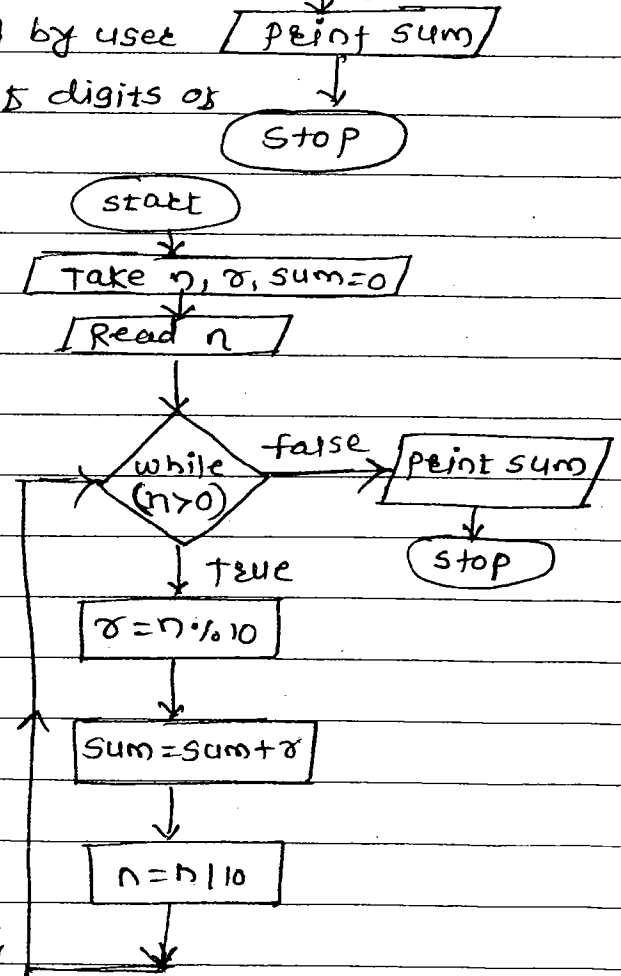 by user
print sum
digits of
Stop
start
Take n, r, sum=0
Read n
while
(n>0)
false
print sum
stop
True
r=n%10
Sum=sum+r
n=n/10